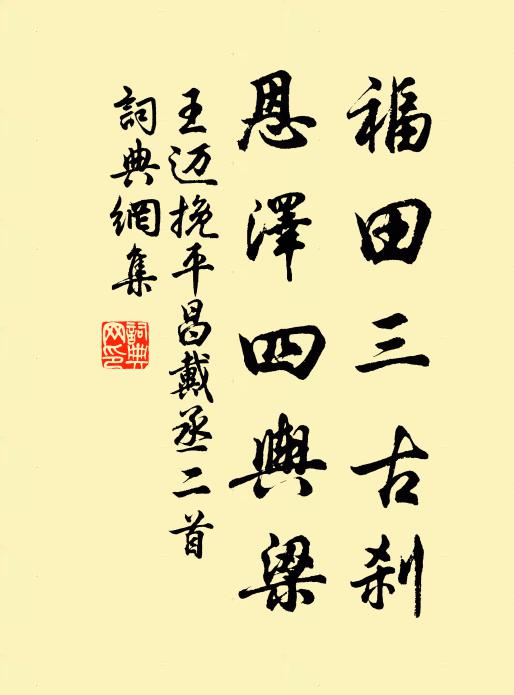 福田三古刹
恩澤四輿梁
王迈挽平昌戴丞二首
詞典網集
詞典網印